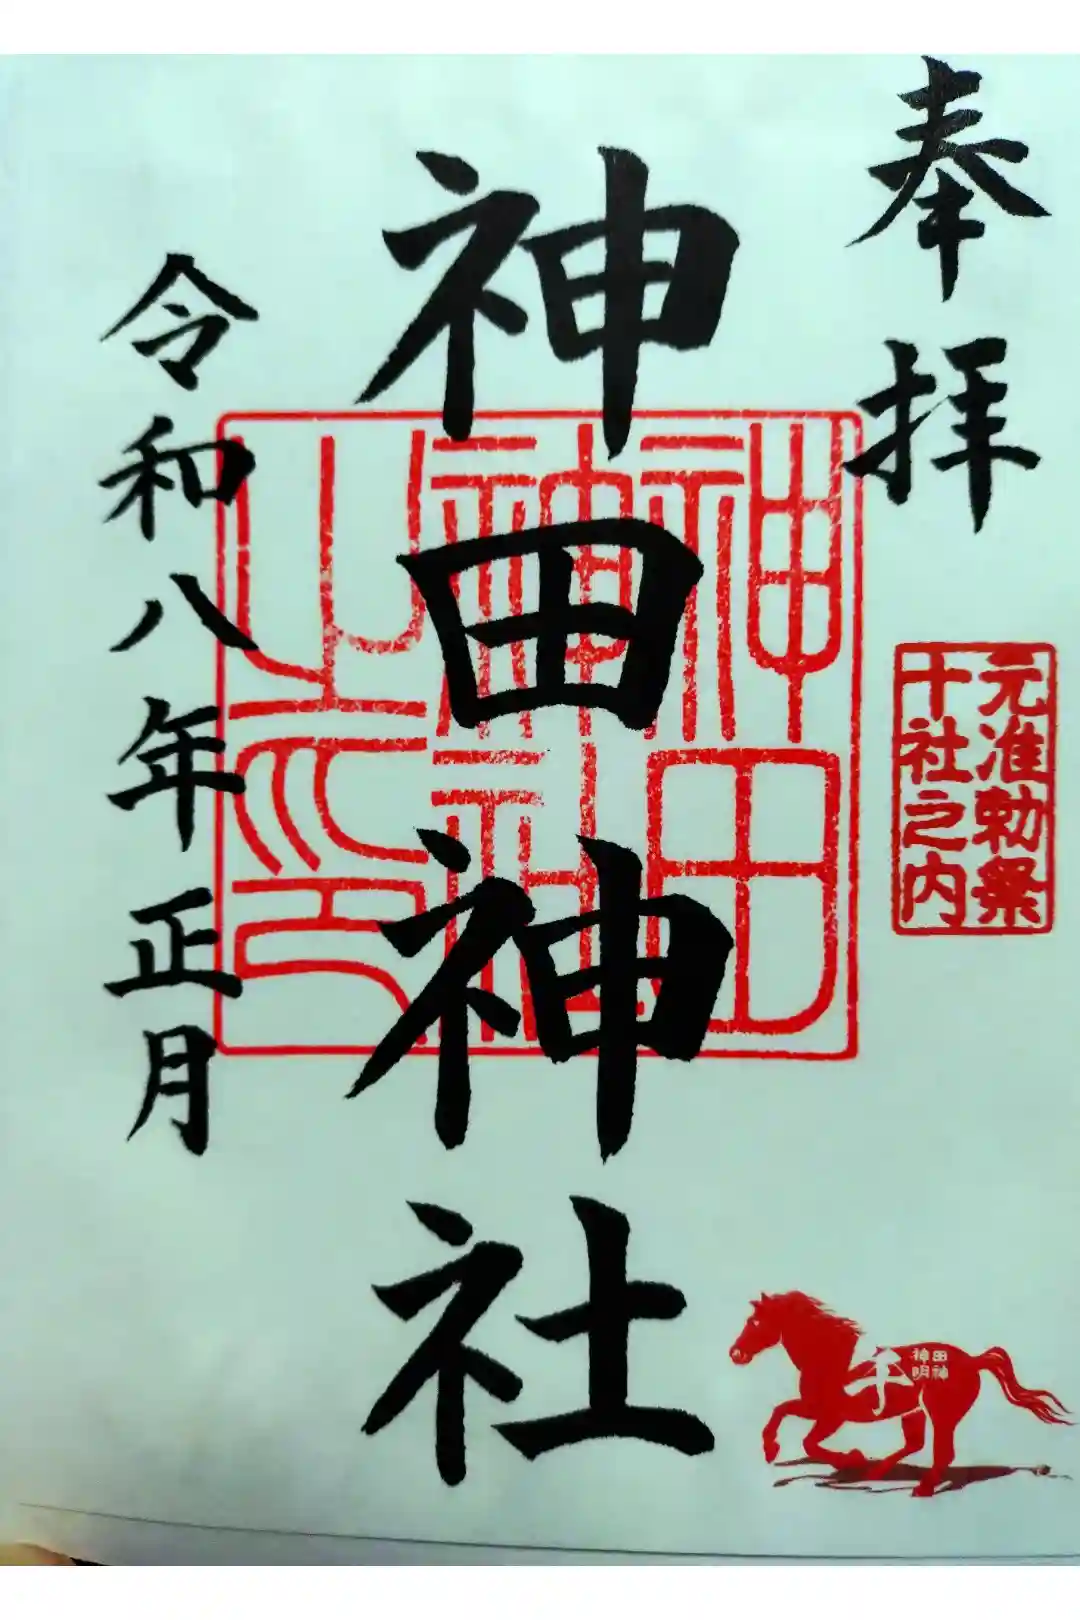 奉拝
元准勅祭
十社之内
神田神社
神田
神社
之印
令和八年正月
午
神田
明神